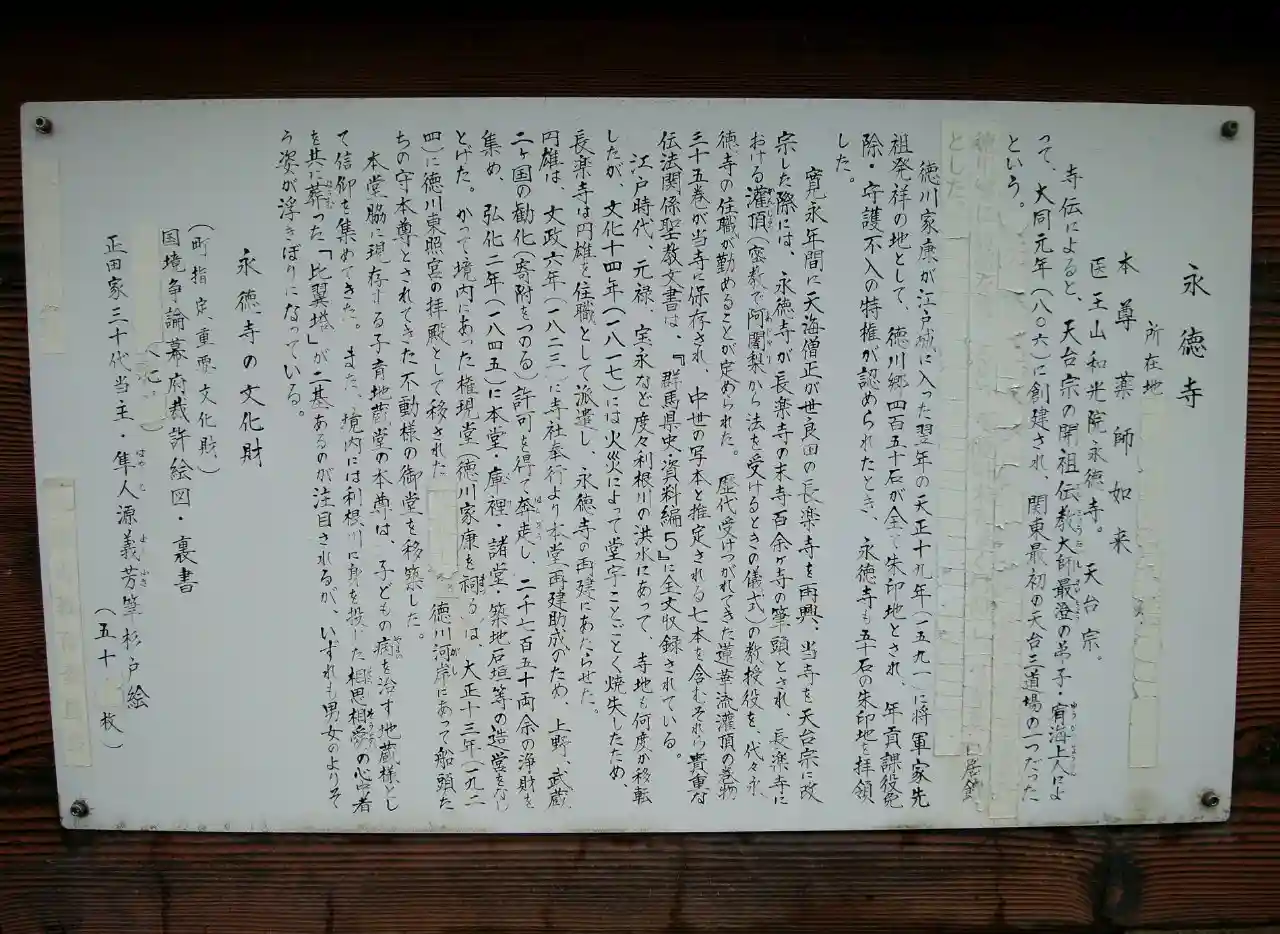 永徳寺
所在地
本尊 薬師如来
医王山和光院永徳寺。 天台宗。
寺伝によると、天台宗の開祖伝教大師最澄の弟子・宥海上人によ
って、大同元年(八〇六)に創建され、関東最初の天台三道場の一つだった
という。
居館
とした。
徳川家康が江戸城に入った翌年の天正十九年(一五九一)に将軍家先
祖発祥の地として、徳川郷四百五十石が全て朱印地とされ、年貢課役免
除・守護不入の特権が認められたとき、永徳寺も五十石の朱印地を拝領
した。
寛永年間に天海僧正が世良田の長楽寺を再興、当寺を天台宗に改
宗した際には、永徳寺が長楽寺の末寺百余ヶ寺の筆頭とされ、長楽寺に
おける灌頂(密教で阿闍梨から法を受けるときの儀式)の教授役を、代々永
徳寺の住職が勤めることが定められた。歴代受けつがれてきた蓮華流灌頂の巻物
三十五巻が当寺に保存され、中世の写本と推定される七本を含むそれら貴重な
伝法関係聖教文書は、『群馬県史・資料編5』に全文収録されている。
江戸時代、元禄、宝永など度々利根川の洪水にあって、寺地も何度か移転
したが、文化十四年(一八一七)には火災によって堂宇ことごとく焼失したため、
長楽寺は円雄を住職として派遣し、永徳寺の再建にあたらせた。
円雄は、文政六年(一八二三)に寺社奉行より本堂再建助成のため、上野、武蔵
二ヶ国の勧化(寄附をつのる)許可を得て奔走し、二千七百五十両余の浄財を
集め、弘化二年(一八四五)に本堂・庫裡・諸堂・築地石垣等の造営をなし
とげた。かって境内にあった権現堂(徳川家康を祠る)は、大正十三年(一九二
四)に徳川東照宮の拝殿として移された 徳川河岸にあって船頭た
ちの守本尊とされてきた不動様の御堂を移築した。
本堂脇に現存する子育地蔵堂の本尊は、子どもの病を治す地蔵様とし
て信仰を集めてきた。また、境内には利根川に身を投じた相思相愛の心中者
を共に葬った「比翼塔」が二基あるのが注目されるが、いずれも男女のよりそ
う姿が浮きぼりになっている。
永徳寺の文化財
(町指定重要文化財)
国境争論幕府裁許絵図・裏書
正田家三十代当主・隼人源義芳筆杉戸絵
(五十 枚)